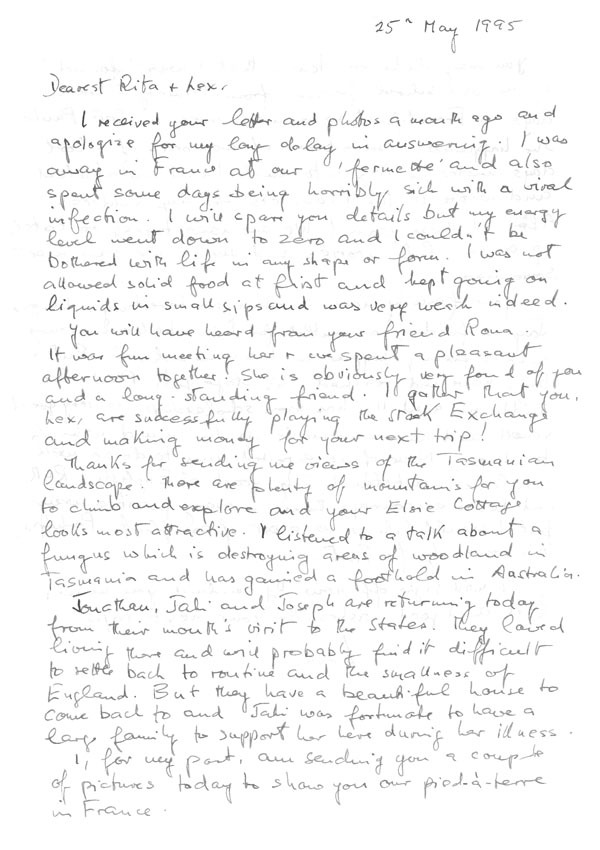 25th May 1995
Dearest Rita + Lex,
I received your letter and photos a month ago and
apologize for my long delay in answering. I was
away in France at our 'fermette' and also
spent some days being horribly sick with a viral
infection. I will spare you details but my energy
level went down to zero and I couldn't be
bothered with life in any shape or form. I was not
allowed solid food at first and kept going on
liquids in small sips and was very weak indeed.
You will have heard from your friend Rona.
It was fun meeting her + we spent a pleasant
afternoon together! She is obviously very fond of you
and a long-standing friend. I gather that you,
Lex, are successfully playing the Stock Exchange
and making money for your next trip!
Thanks for sending me views of the Tasmanian
landscape. There are plenty of mountains for you
to climb and explore and your Elsie Cottage
looks most attractive. I listened to a talk about a
fungus which is destroying areas of woodland in
Tasmania and has gained a foothold in Australia.
Jonathan, Jaki and Joseph are returning today
from their month's visit to the States. They loved
living there and will probably find it difficult
to settle back to routine and the smallness of
England. But they have a beautiful house to
come back to and Jaki was fortunate to have a
large family to support her here during her illness.
I, for my part, am sending you a couple
of pictures today to show you our pied-à-terre
in France.